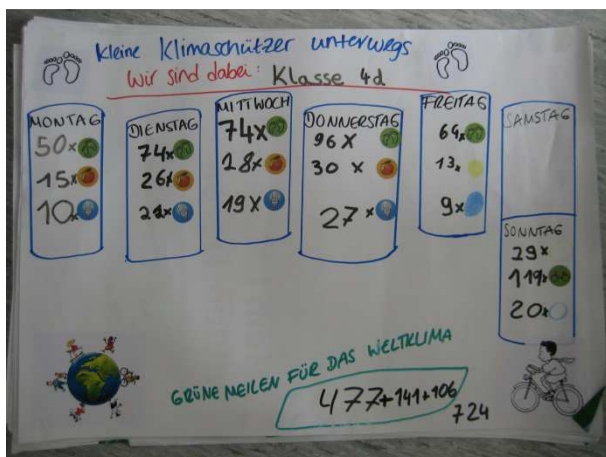 Kleine Klimaschützer unterwegs
Wir sind dabei: Klasse 4d
MONTAG
50x
15x
10x
DIENSTAG
74x
26x
21x
MITTWOCH
74x
28x
19x
DONNERSTAG
96x
30 x
27x
FREITAG
64x
13x
9x
SAMSTAG
SONNTAG
29x
119x
20x
GRÜNE MEILEN FÜR DAS WELTKLIMA
477+141+106
724